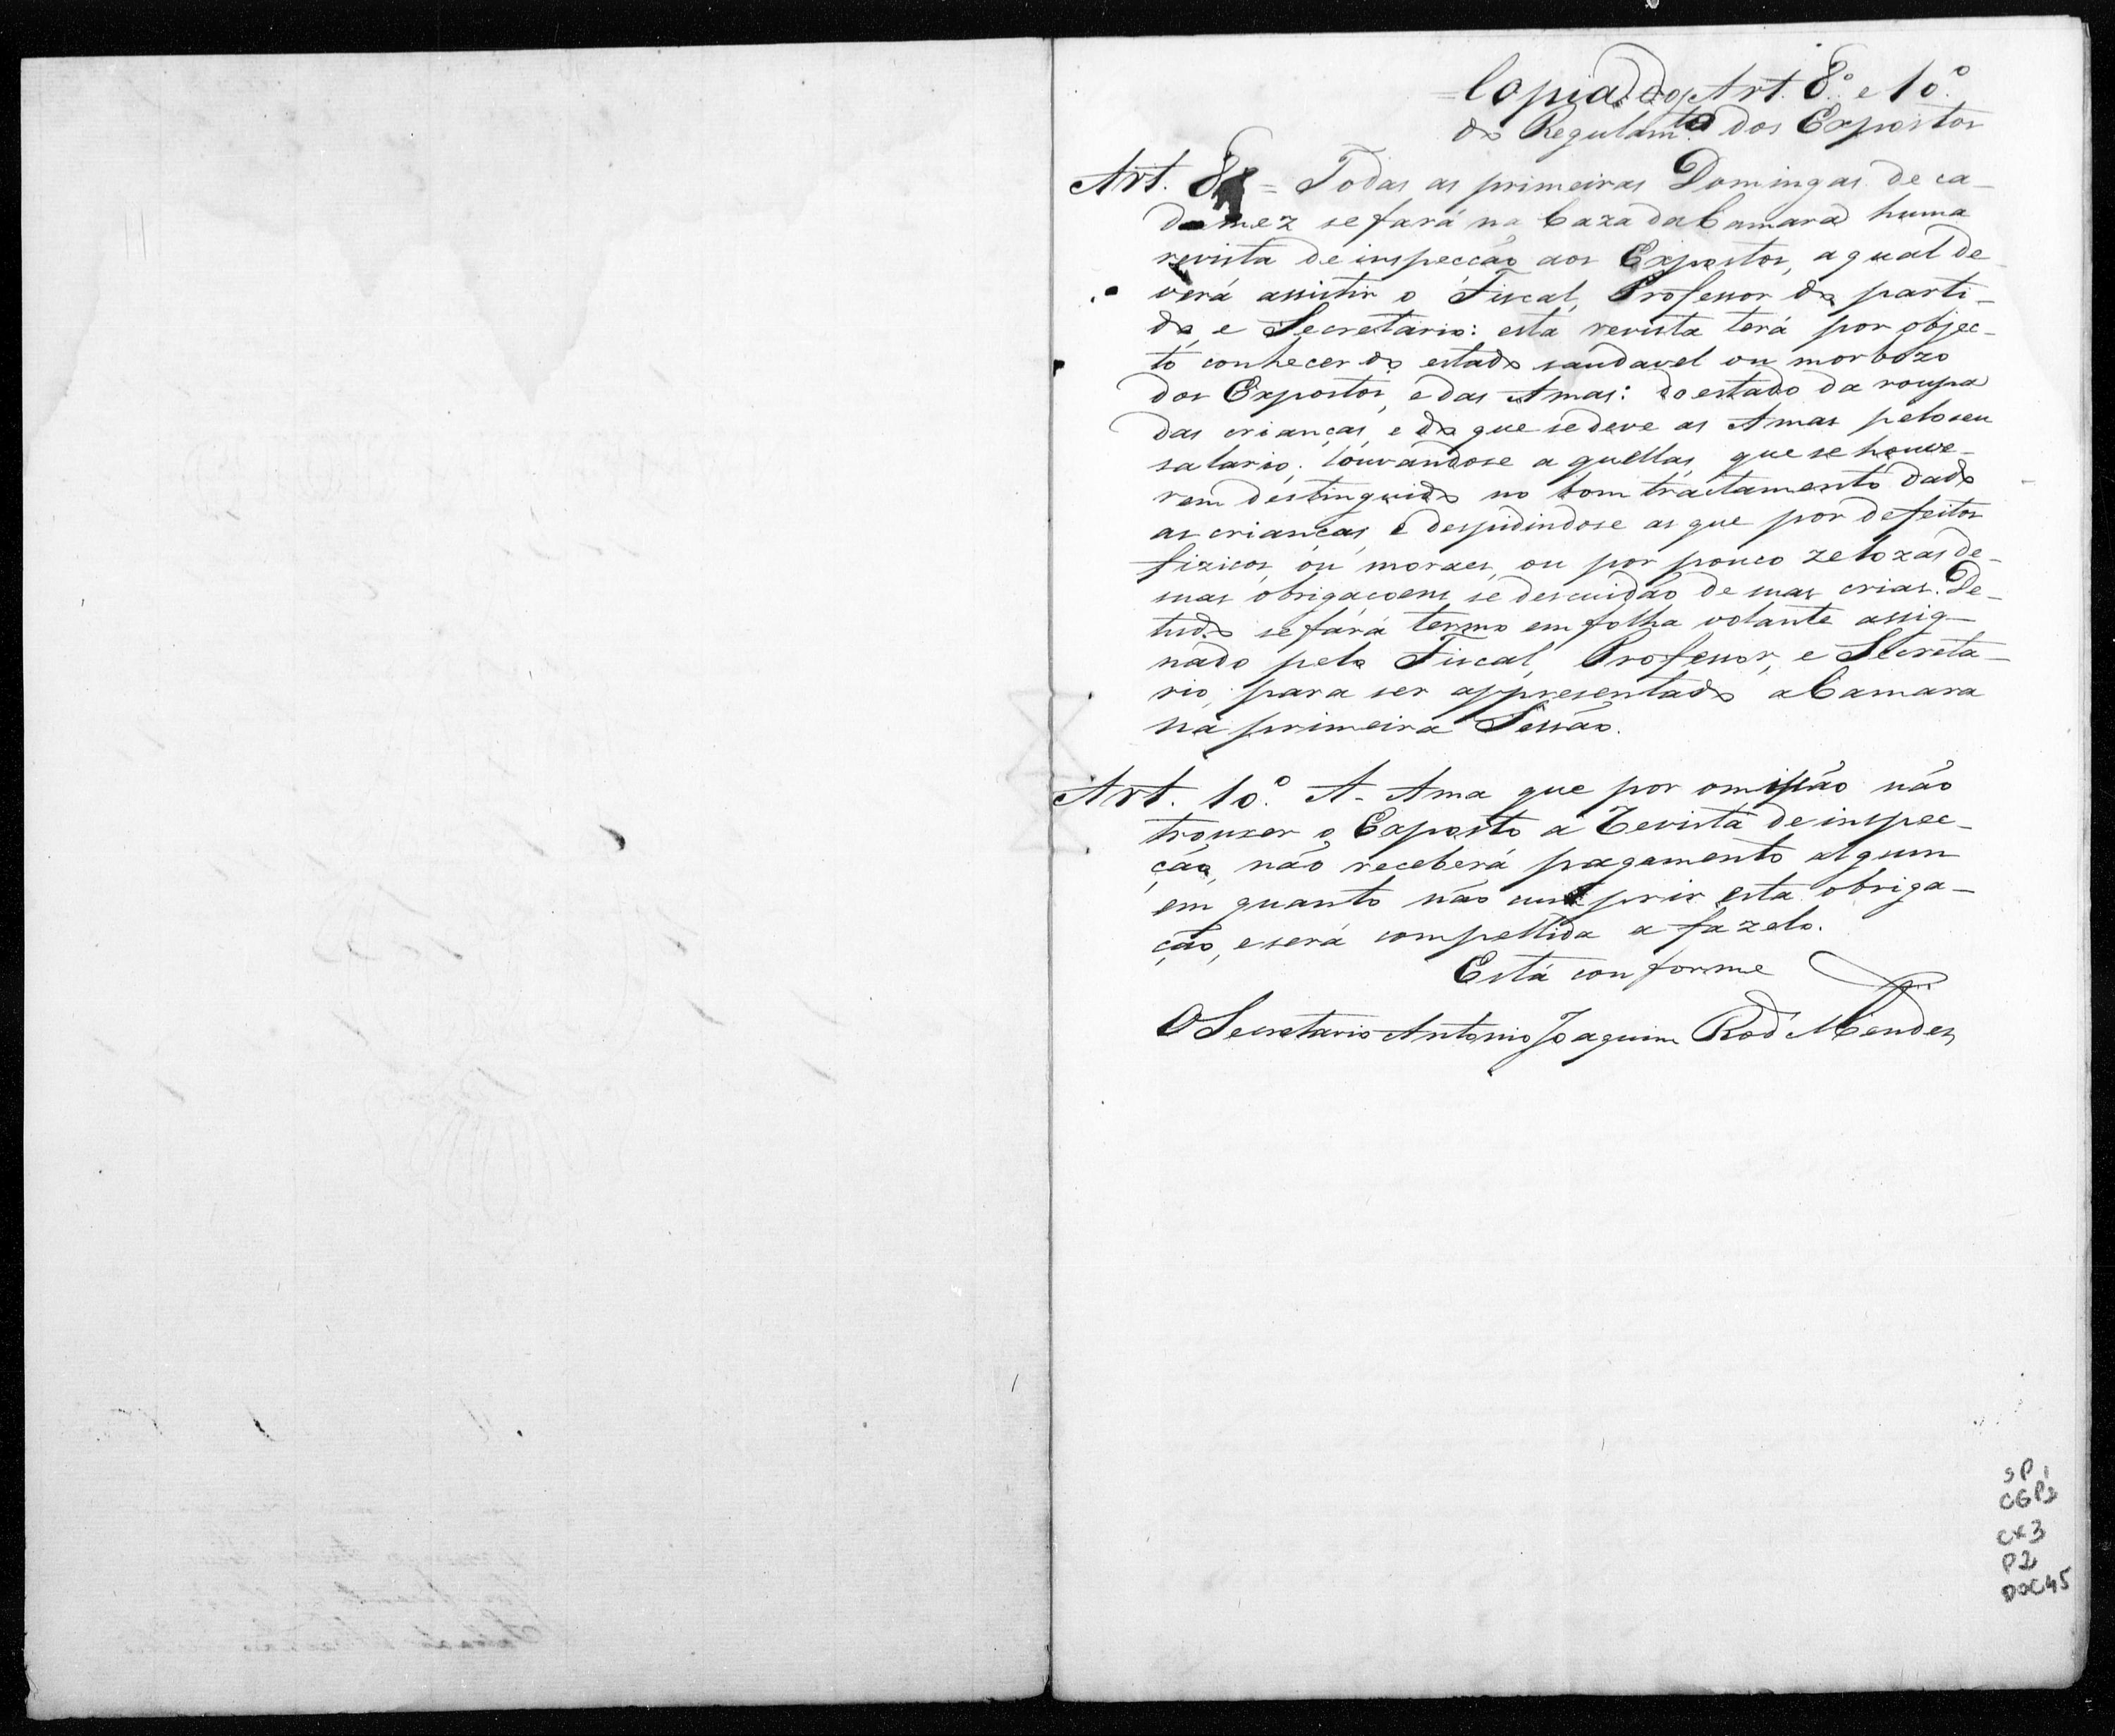 Copia dos Art. 8.º e 10.º
do Regulam.to dos Expostos
Art. 8.º = Todas as primeiras Domingas de ca-
da mez se fará na Caza da Camara huma
revista de inspecção aos Expostos, a qual de-
verá assistir o Fiscal, Professor do parti-
do, e Secretario: esta revista terá por objec-
to conhecer do estado saudavel ou morbozo
dos Expostos, e das Amas: do estado da roupa
das crianças, e do que se deve as Amas pelo seu
salario; louvandose a quellas, que se houve-
rem destinguido no bom tractamento dado
as crianças, e despidindose as que por defeitos
fizicos, ou moraes, ou por pouco zelozas de
suas obrigacoens se descuidão de suas crias. De-
tudo se fará termo em folha volante assig-
nado pelo Fiscal, Professor, e Secreta-
rio, para ser appresentado a Camara
na primeira Sessão.
Art. 10.º A - Ama que por omissão não
trouxer o Exposto a Revista de inspec-
ção, não receberá pagamento algum
em quanto não cumprir esta obriga-
ção, e será compellida a fazelo.
Está conforme
O Secretario Antonio Joaquim Rod Mendes
SP
CGP2
CX3
P2
DOC45